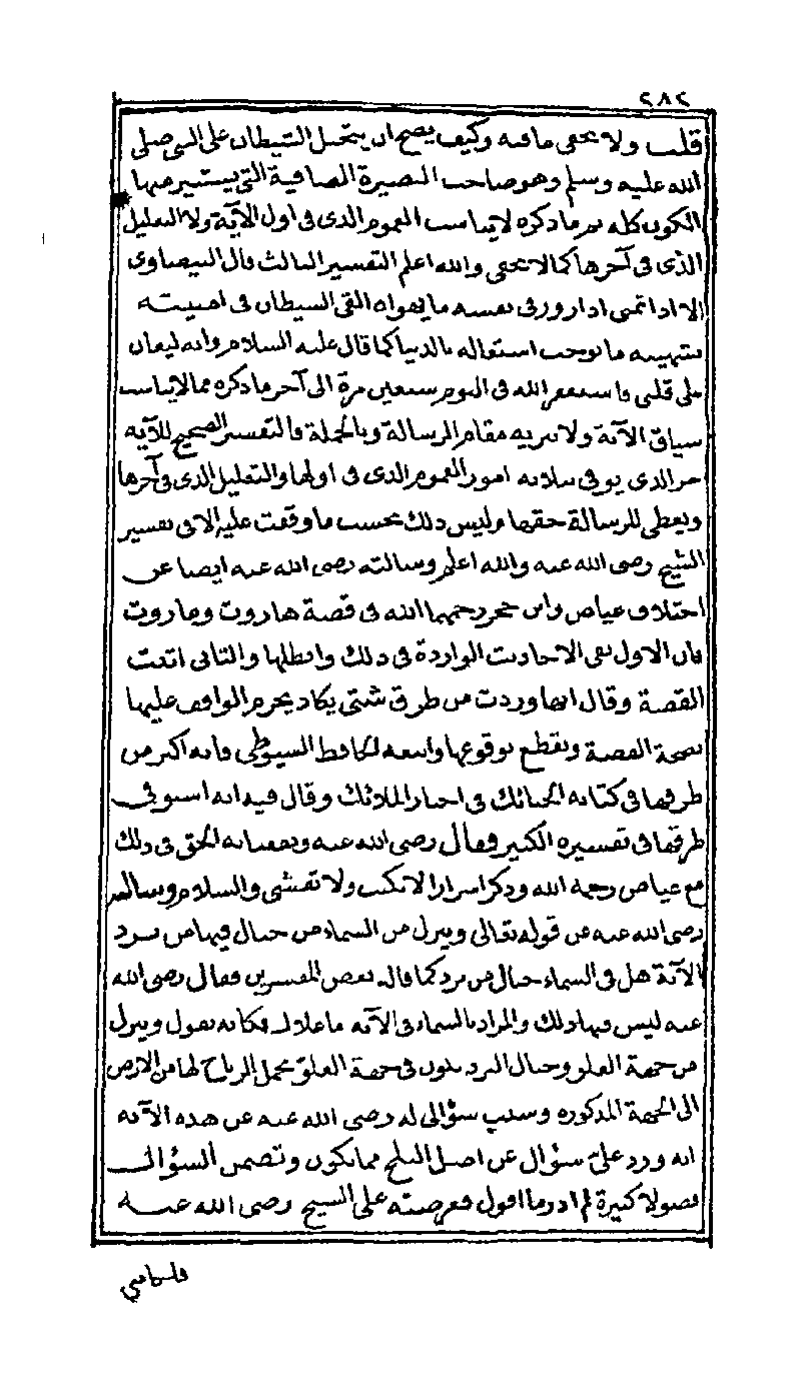 ٢٨٢
قلت ولا يخفى ما فيه وكيف يصح ان يتحيل الشيطان على النبي صلى
الله عليه وسلم وهو صاحب البصيرة الصافية التي يستنير منها
الكون كله ثم ما ذكره لا يناسب العموم الذي في اول الآية ولا التعليل
الذي في آخرها كما لا يخفى والله اعلم التفسير الثالث قال البيضاوي
الا اذا تمنى اذا زور في نفسه ما يهواه القى الشيطان في امنيته
تشهيه ما يوجب اشتغاله بالدنيا كما قال عليه السلام وانه ليغان
على قلبي فاستغفر الله في اليوم سبعين مرة الى آخر ما ذكره مما لا يناسب
سياق الآية ولا تنزيه مقام الرسالة وبالجملة فالتفسير الصحيح للآية
هو الذي يوفي بثلاثة امور العموم الذي في اولها والتعليل الذي في آخرها
ويعطي للرسالة حقها وليس ذلك بحسب ما وقفت عليه الا في تفسير
الشيخ رضي الله عنه والله اعلم وسالته رضي الله عنه ايضا عن
اختلاف عياض وابن حجر رحمهما الله في قصة هاروت وماروت
فان الاول نفى الاحاديث الواردة في ذلك وابطلها والثاني اثبت
القصة وقال انها وردت من طرق شتى يكاد يجزم الواقف عليها
بصحة القصة ويقطع بوقوعها واتبعه الحافظ السيوطي فانه اكثر من
طرقها في كتابه الحبائك في اخبار الملائك وقال فيه انه استوفى
طرقها في تفسيره الكبير فقال رضي الله عنه ونفعنا به الحق في ذلك
مع عياض رحمه الله وذكر اسرارا لا تكتب ولا تفشى والسلام وسالته
رضي الله عنه عن قوله تعالى وينزل من السماء من جبال فيها من برد
الآية هل في السماء جبال من برد كما قاله بعض المفسرين فقال رضي الله
عنه ليس فيها ذلك والمراد بالسماء في الآية ما علاك فكانه يقول وينزل
من جهة العلو وجبال البرد تكون في جهة العلو بحمل الرياح لها من الارض
الى الجهة المذكورة وسبب سؤالي له رضي الله عنه عن هذه الآية
انه ورد علي سؤال عن اصل الثلج مما يكون وتضمن السؤال
فصولا كثيرة لم ادر ما اقول فعرضته على الشيخ رضي الله عنه